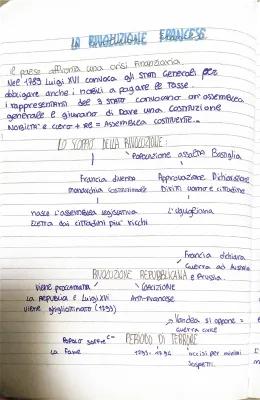 LA RIVOLUZIONE FRANCESE
Il paese affronta una crisi finanziaria.
Nel 1789 Luigi XVI convoca gli Stati Generali per
obbligare anche i nobili a pagare le tasse.
i rappresentanti del 3 stato convocano un'assemblea
generale e giurano di Dare una COSTITUZIONE
NOBILTA' e clero + RE = ASSEMBLEA COSTITUENTE.
LO SCOPPIO DELLA RIVOLUZIONE:
Popolazione assalta Bastiglia
Francia diventa Approvazione Dichiarazione
monarchia costituzionale Diritti uomo e cittadino
nasce l'assemblea legislativa l'uguaglianza
Eletta dai cittadini più ricchi
Francia dichiara
Guerra ad Austria
RIVOLUZIONE REPUBBLICANA e Prussia.
Viene proclamata COALIZIONE
La Repubblica e Luigi XVI Anti-francese
viene ghigliottinato (1793)
Vandea si oppone =
guerra civile
POPOLO soffre PERIODO DI TERRORE
La Fame 1793-1794 uccisi per minimi
sospetti.